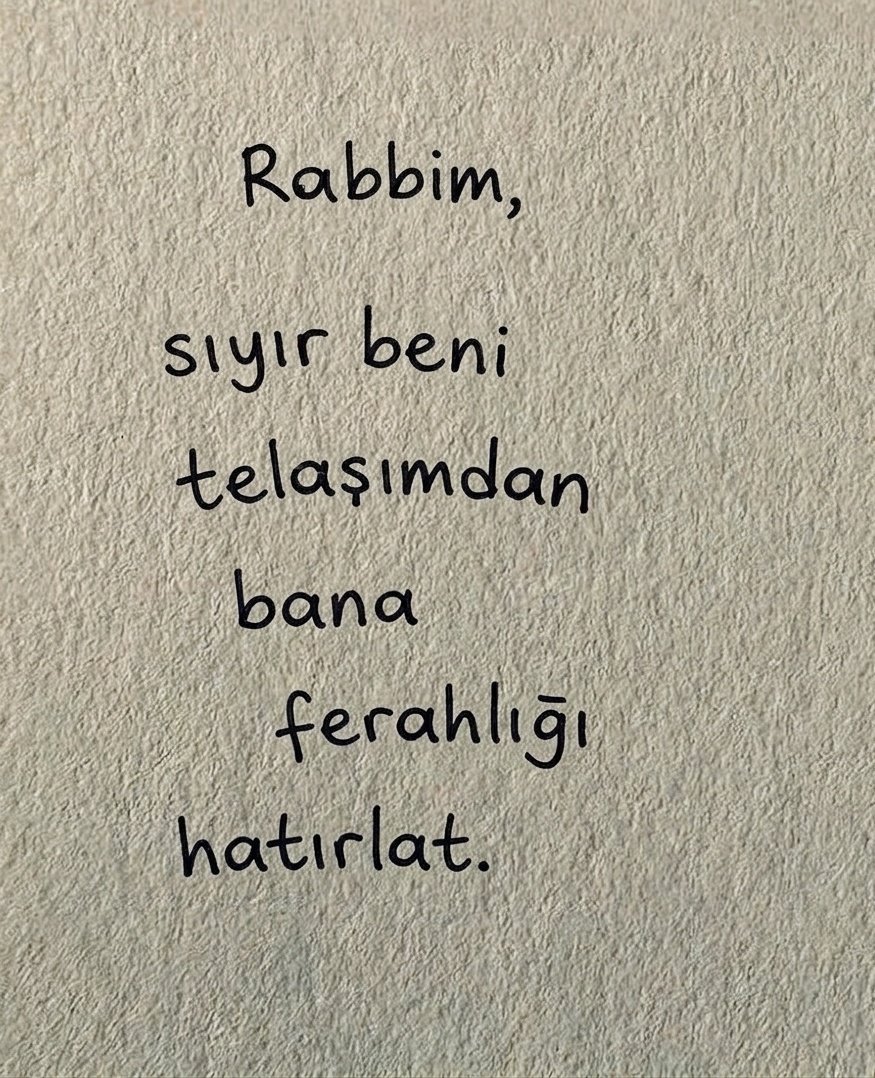 Rabbim,
sıyır beni
telaşımdan
bana
ferahlığı
hatırlat.